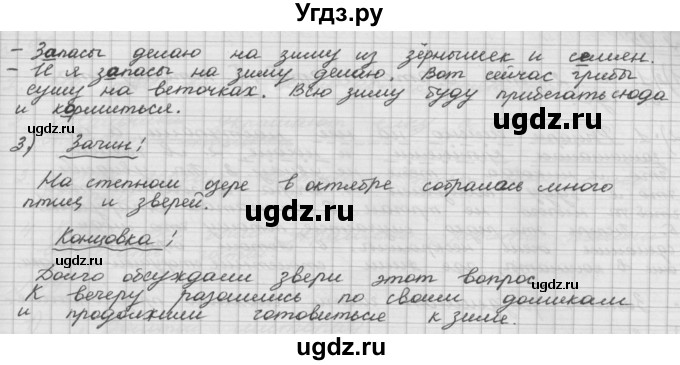 Угдз.ру
- Запасы делаю на зиму из зёрнышек и семян.
- И я запасы на зиму делаю. Вот сейчас грибы
сушу на веточках. Всю зиму буду прибегать сюда
и кормиться.
ugdz.ru ugdz.ru
3) Зачин!
На степном озере в октябре собралась много
птиц и зверей.
ugdz.ru
Концовка!
ugdz.ru ugdz.ru
Долго обсуждали звери этот вопрос.
К вечеру разошлись по своим домикам
и продолжили готовиться к зиме.
ugdz.ru